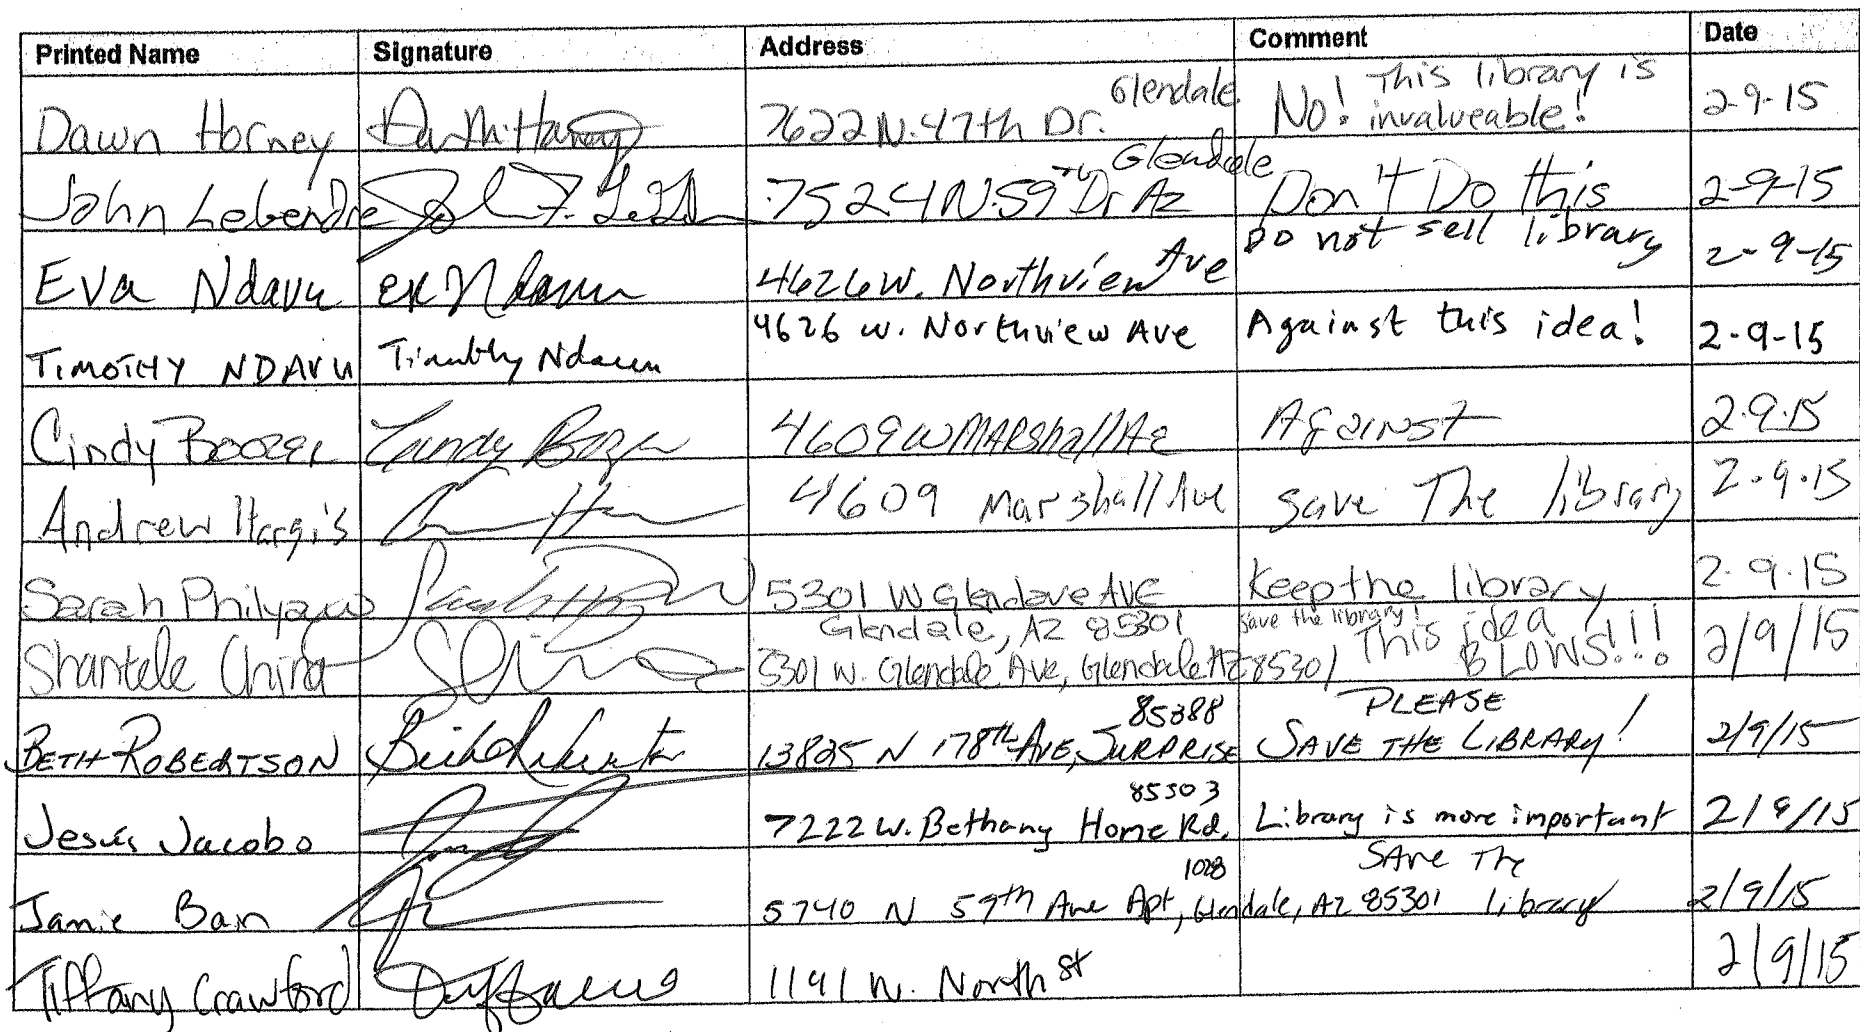 Printed Name Signature Address Comment Date
Dawn Horney 7622 N. 47th Dr. Glendale No! This library is invalueable! 2-9-15
John Lebendre John F. 7524 N. 59th Dr Az Glendale Don't Do this 2-9-15
Eva Ndavu Ndavu 4626 W. Northview Ave Do not sell library 2-9-15
TIMOTHY NDAVU Timothy Ndavu 4626 W. Northview Ave Against this idea! 2-9-15
Cindy Boozer Cindy Boozer 4609 W MARShall Ave Against 2.9.15
Andrew Hargis 4609 Marshall Ave save The library 2.9.15
Sarah Philyaw 5301 W Glendave AVE Keep the library 2.9.15
Glendale, AZ 85301 save the library!
Shantele China 5301 W. Glendale Ave, Glendale AZ 85301 This idea BLOWS!!! 2/9/15
BETH ROBERTSON 13825 N 178th AVE, SURPRISE 85388 PLEASE SAVE THE LIBRARY! 2/9/15
Jesús Jacobo 7222 W. Bethany Home Rd. 85303 Library is more important 2/9/15
Jamie Bain 5740 N 59th Ave Apt 1028, Glendale, AZ 85301 SAve The library 2/9/15
Tiffany Crawford 1191 W. North st 2/9/15